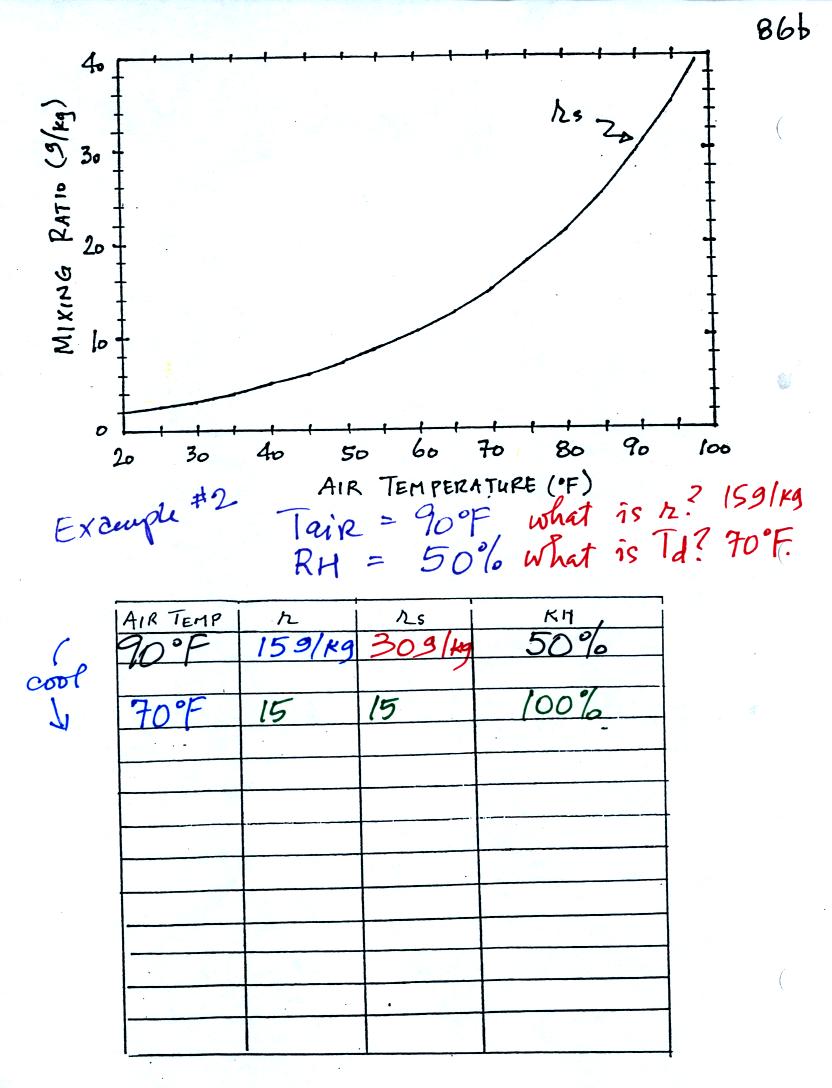 86b
40
30
20
10
0
MIXING RATIO (g/kg)
rs
20 30 40 50 60 70 80 90 100
AIR TEMPERATURE (°F)
Example #2
Tair = 90°F what is r? 15g/kg
RH = 50% what is Td? 70°F.
AIR TEMP r rs RH
90°F 15g/kg 30g/kg 50%
cool
70°F 15 15 100%